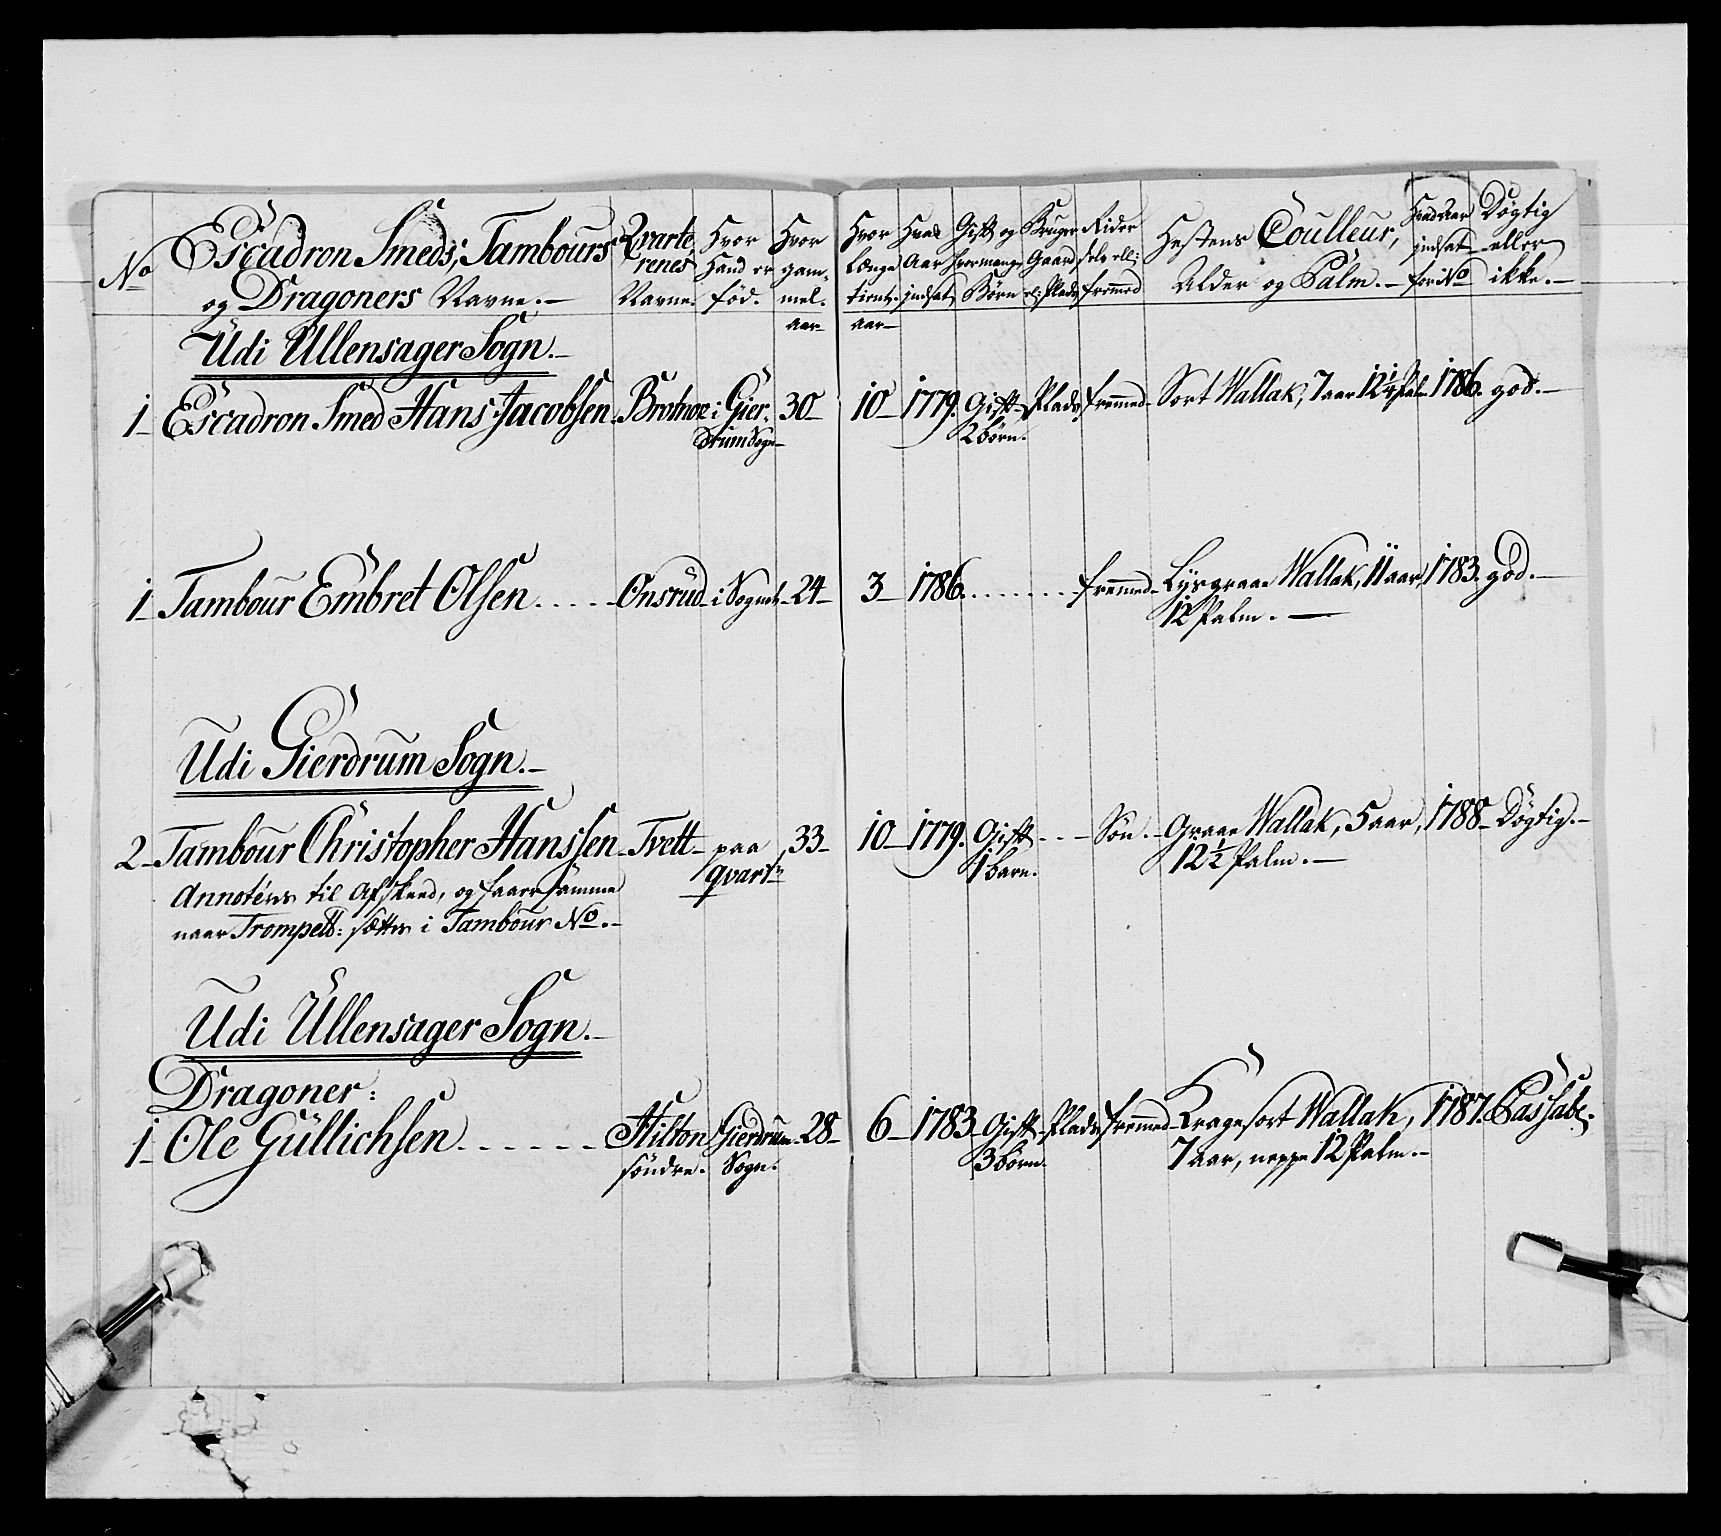 No
Escadron Smeds, Tambours
og Dragoners Navne.
Qvarte
renes
Navne.
Hvor
Hand er
fød.
Hvor
gam-
mel.
aar
Hvor
længe
tient.
aar
Hvad
Aar
indsat
Gift og
hvormange
Børn
Bruger
Gaard
el: Plads
Rider
selv ell:
fremmed
Hestens Couleur,
Alder og Palm.
Hvad Aar
indsat
for No
Døgtig
eller
ikke.
Udi Ullensager Sogn.
1 Escadron Smed Hans Jacobsen i Gier- 30 10 1779. Gift Plads fremmed Sort Wallak, 7 aar 12¼ Pal 1786. god.
drum Sogn 2 børn.
1 Tambour Embret Olsen Onsrud i Sognet 24 3 1786. fremmed Lysgraae Wallak, 11 aar, 1783. god.
12 Palm.
Udi Gierdrum Sogn.
2 Tambour Christopher Hanssen Tvett paa 33 10 1779. Gift Søn. Graae Wallak, 5 aar, 1788 Døgtig.
qvartn 1 barn. 12½ Palm.
Annoteres til Afskeed, og faaer samme
naar Trompett: sættes i Tambour No.
Udi Ullensager Sogn.
Dragoner:
1 Ole Gullichsen Hilton Gierdrum 28 6 1783 Gift Plads fremmed Kragesort Wallak, 1787. Passabl.
søndre. Sogn. 3 børn. 7 aar, neppe 12 Palm.